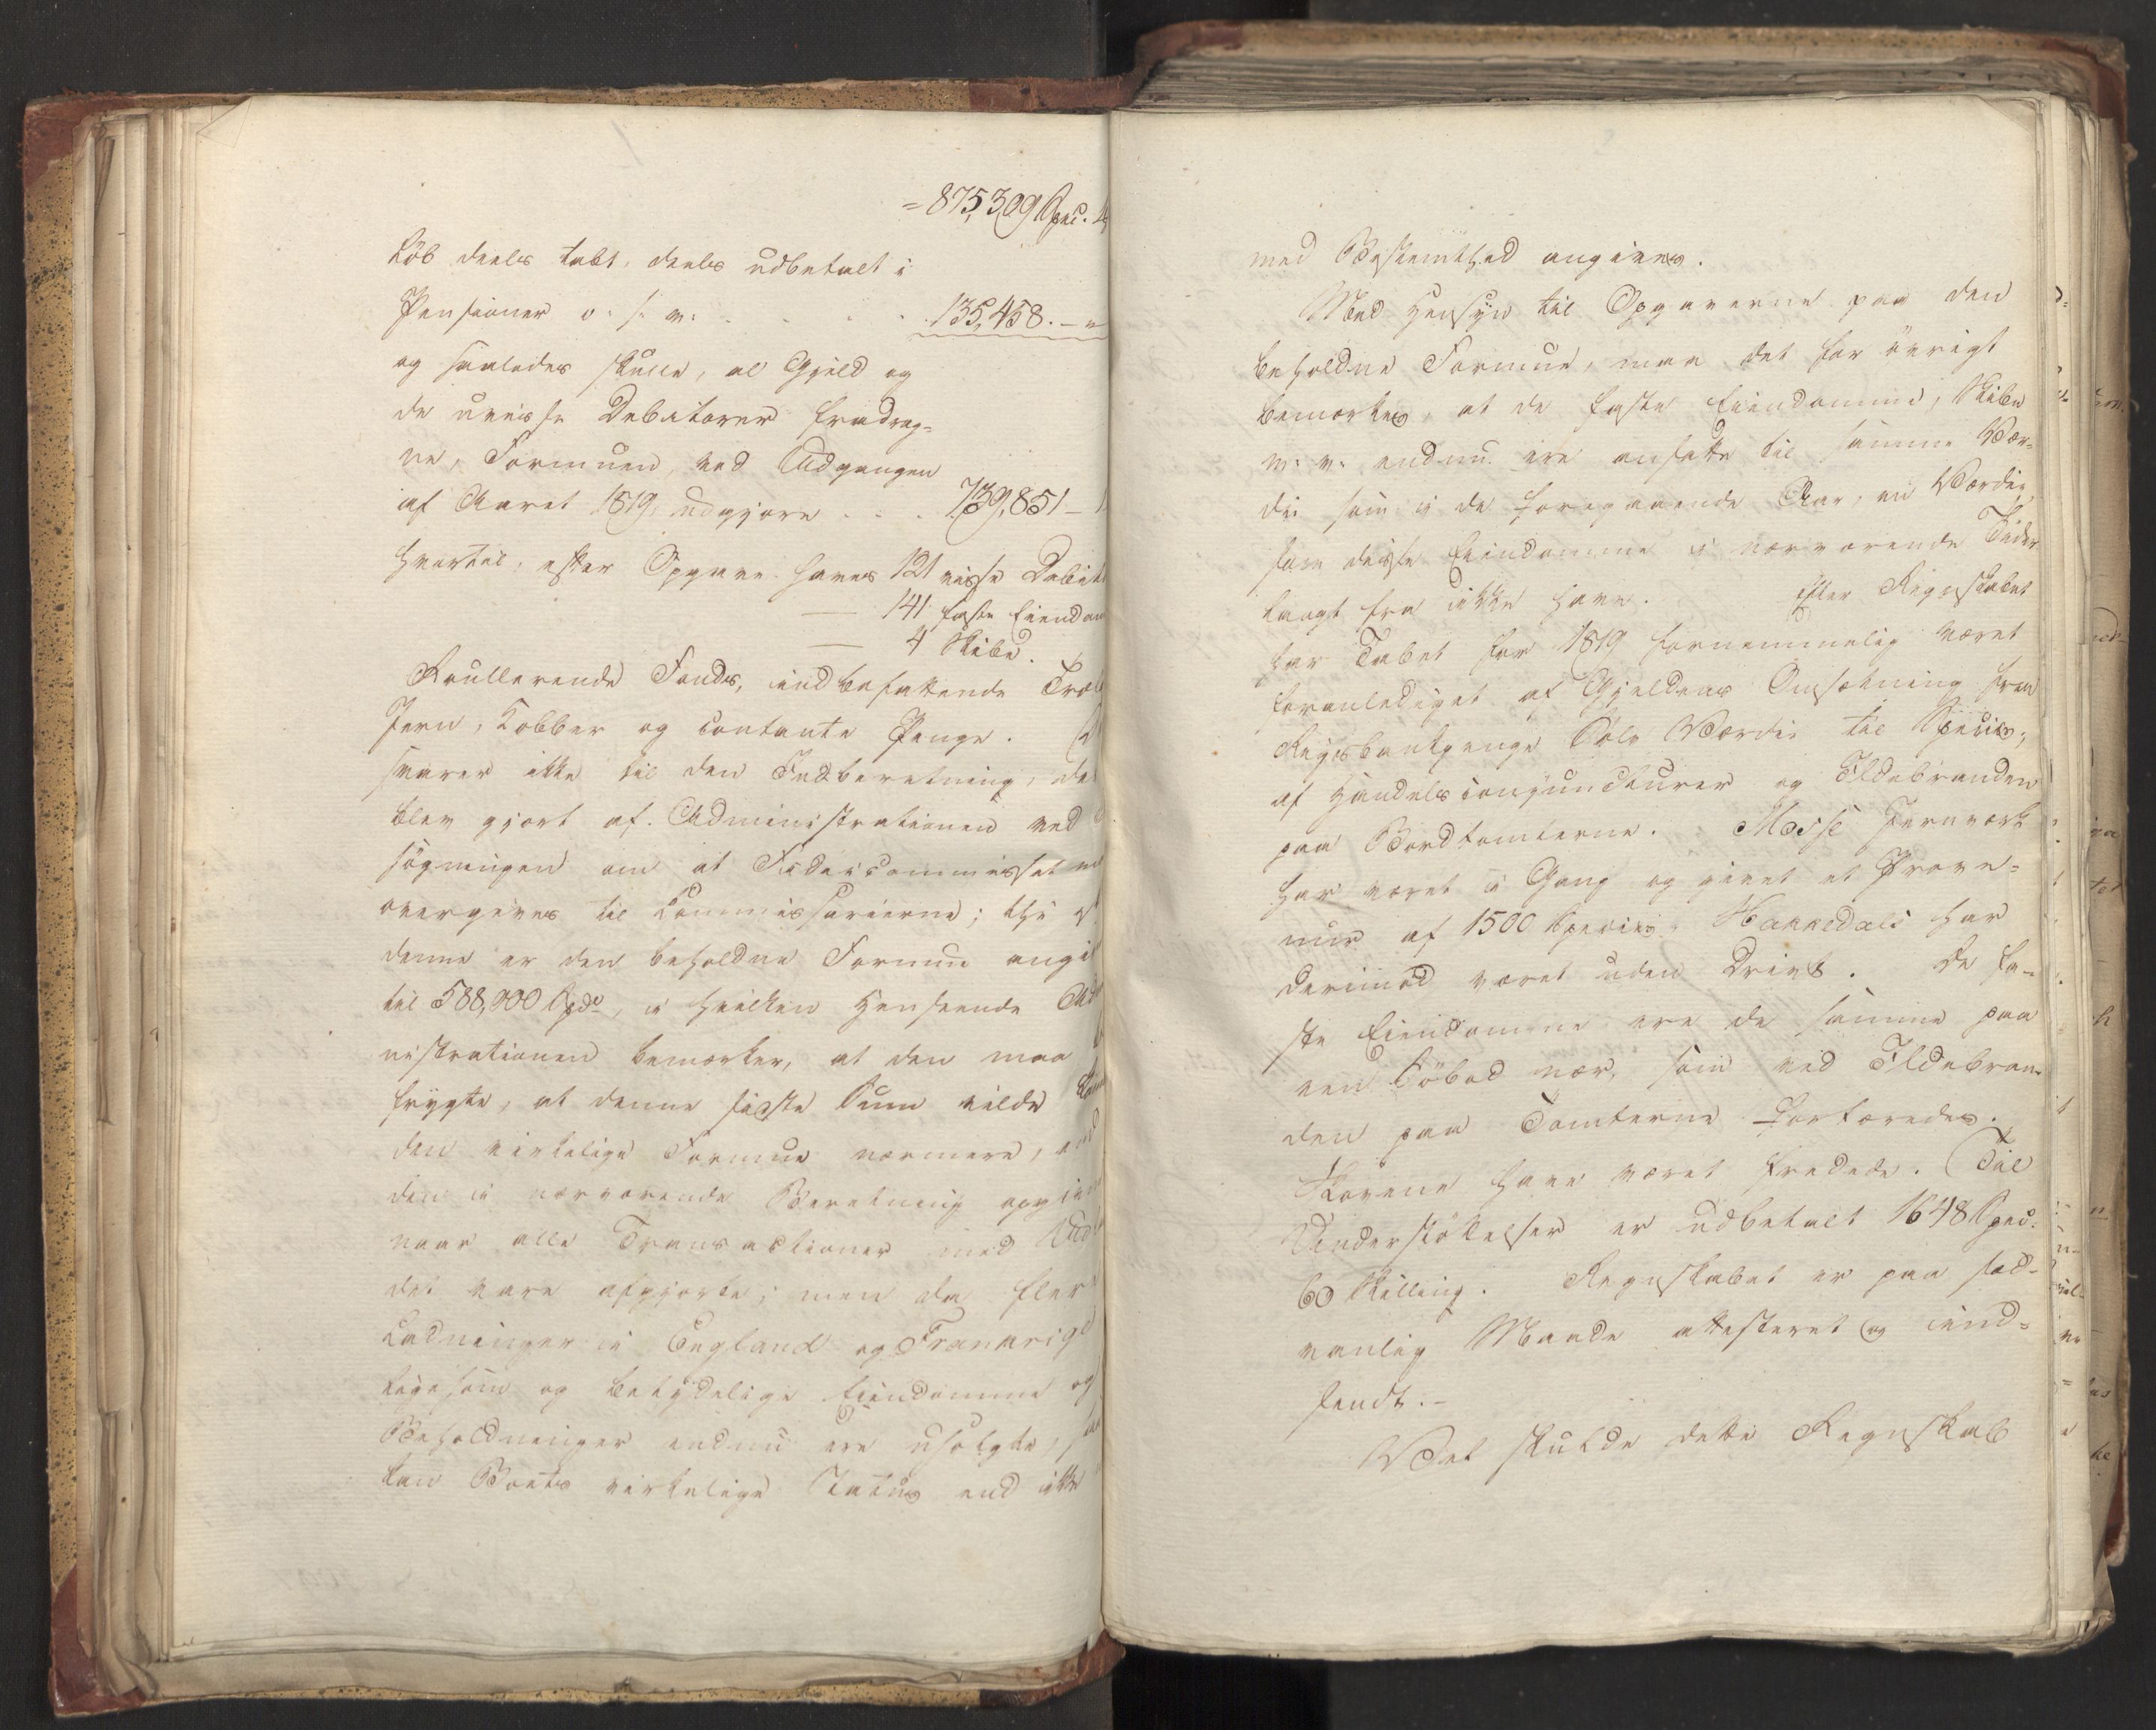 =875,309 Spec.
Løb deels tabt, deels udbetalt i
Pensioner o: s: v: . . . . 135,458. —
og saaledes skulle, al Gjeld og
de uvisse Debitorer fradrag-
ne, Formuen, ved Udgangen
af Aaret 1819, udgjøre . . . 739,851 —
hvortil, efter Opgave haves 121 visse Debit
— 141 faste Eiendom
— 4 Skibe.
Roullerende Fonds, indbefattende Træl
Jern, Kobber og contante Penge.
svarer ikke til den Indberetning, de
blev gjort af Administrationen ved
søgningen om at Fideicommisset
overgives til Commissarierne; thi
denne er den beholdne Formue angi
til 588,000 Spd, i hvilken Henseende Ad
nistrationen bemærker, at den maa
frygte, at denne sidste Sum vilde
den virkelige Formue nærmere, end
den i nærværende Beretning opgivne
naar alle Transactioner med Udl
det vare afgjorte; men da flere
Ladninger i England og Frankrige
ligesom og betydelige Eiendomme og
Beholdninger endnu ere usolgte, saa
kan Boets virkelige Status end ikke
med Bestemthed angives.
Med Hensyn til Opgaverne paa den
beholdne Formue, maa det for øvrigt
bemærkes, at de faste Eiendomme, Skibe
m: v: endnu ere ansatte til samme Vær-
die som i de foregaaende Aar, en Værdie
som disse Eiendomme i nærværende Tider
langt fra ikke have. Efter Regnskabet
har Tabet for 1819 fornemmelig været
foranlediget af Gjeldens Omsætning fra
Rigsbankpenge Sølv Værdie til Species,
af Handelsconjuncturer og Ildebranden
paa Bordtomterne. Mosse Jernværk
har været i Gang og givet et Prove-
nue af 1500 Species. Hakkedals har
derimod været uden Drivt. De fa-
ste Eiendomme ere de samme paa
een Søbod nær, som ved Ildebran-
den paa Tomterne fortæredes.
Skovene have været fredede. Til
Understøttelser er udbetalt 1648 Spec:
60 Skilling. Regnskabet er paa sæd-
vanlig Maade attesteret og ind-
sendt.-
Vel skulde dette Regnskab